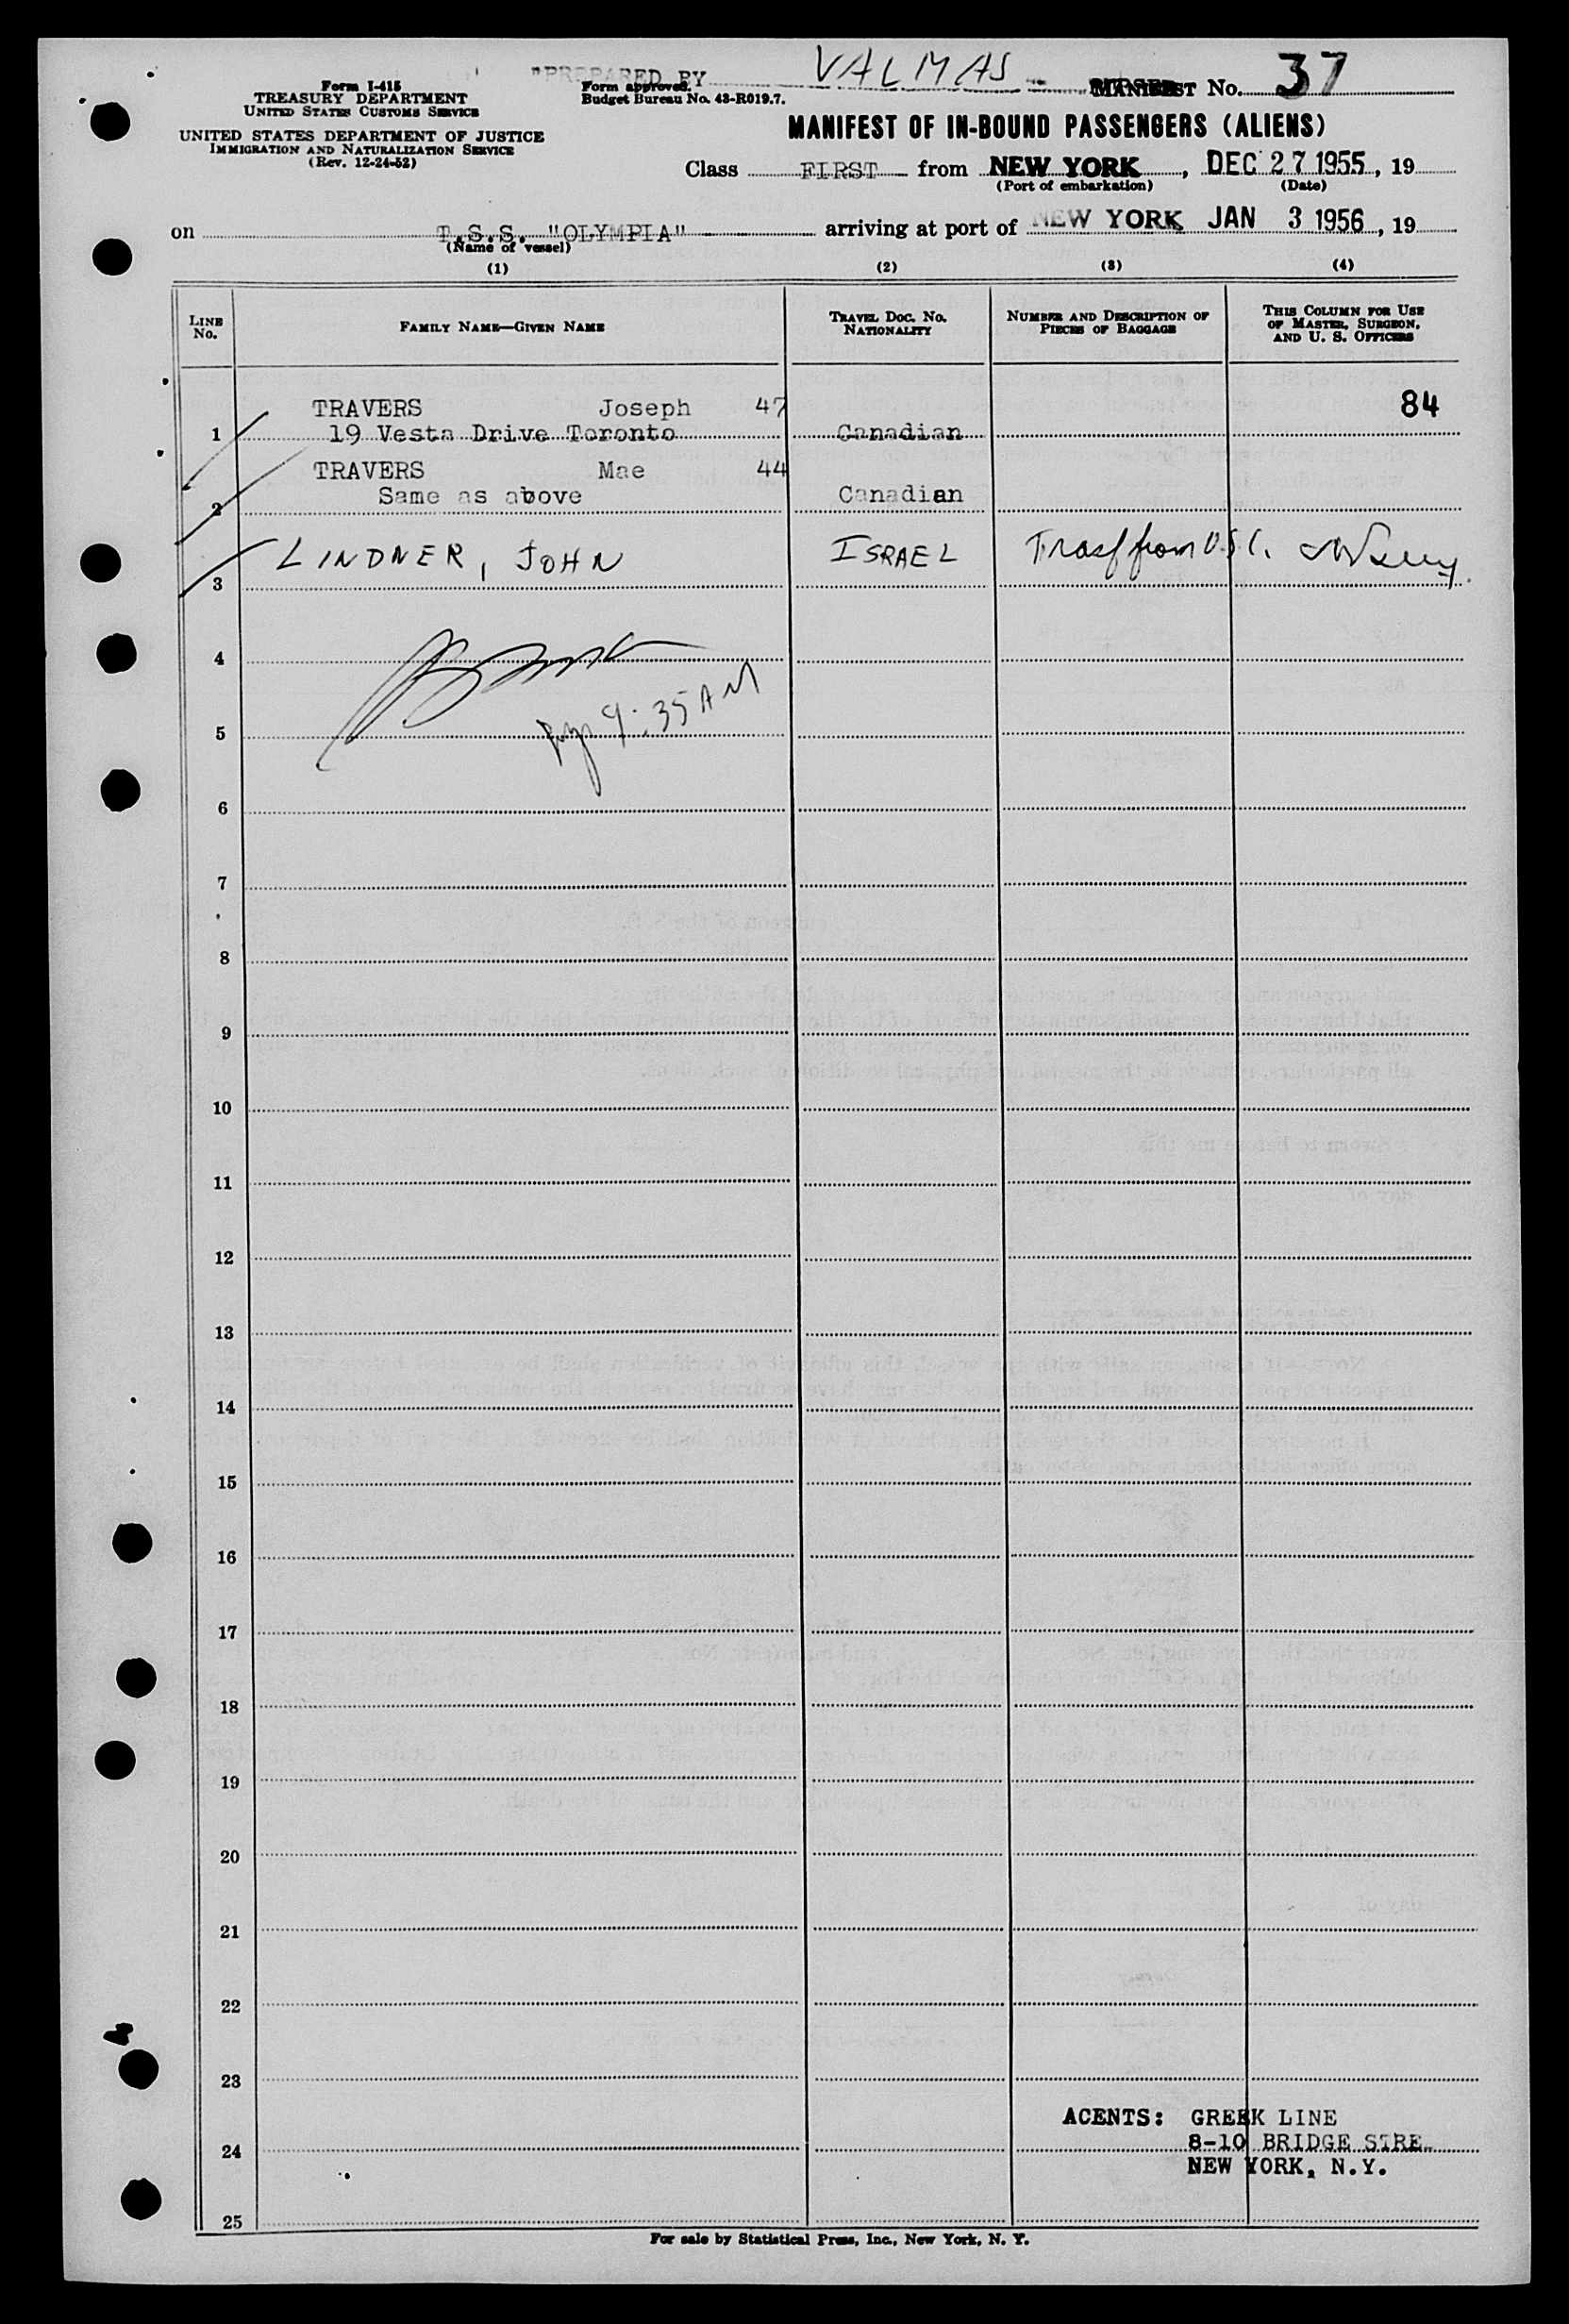 "PREPARED BY VALMAS PURSER
Form I-415
TREASURY DEPARTMENT
UNITED STATES CUSTOMS SERVICE
UNITED STATES DEPARTMENT OF JUSTICE
IMMIGRATION AND NATURALIZATION SERVICE
(Rev. 12-24-52)
Form approved.
Budget Bureau No. 43-R019.7.
MANIFEST No. 37
MANIFEST OF IN-BOUND PASSENGERS (ALIENS)
Class FIRST from NEW YORK, DEC 27 1955, 19
(Port of embarkation) (Date)
on T.S.S. "OLYMPIA" arriving at port of NEW YORK JAN 3 1956, 19
(Name of vessel)
(1) (2) (3) (4)
LINE No. FAMILY NAME—GIVEN NAME TRAVEL DOC. No. NATIONALITY NUMBER AND DESCRIPTION OF PIECES OF BAGGAGE THIS COLUMN FOR USE OF MASTER, SURGEON, AND U. S. OFFICERS
TRAVERS Joseph 47 84
1 19 Vesta Drive Toronto Canadian
TRAVERS Mae 44
2 Same as above Canadian
3 LINDNER, JOHN ISRAEL Trasf from USC.
4
5 9:35 AM
6
7
8
9
10
11
12
13
14
15
16
17
18
19
20
21
22
23
ACENTS: GREEK LINE
24 8-10 BRIDGE STRE
NEW YORK, N.Y.
25
For sale by Statistical Press, Inc., New York, N. Y.